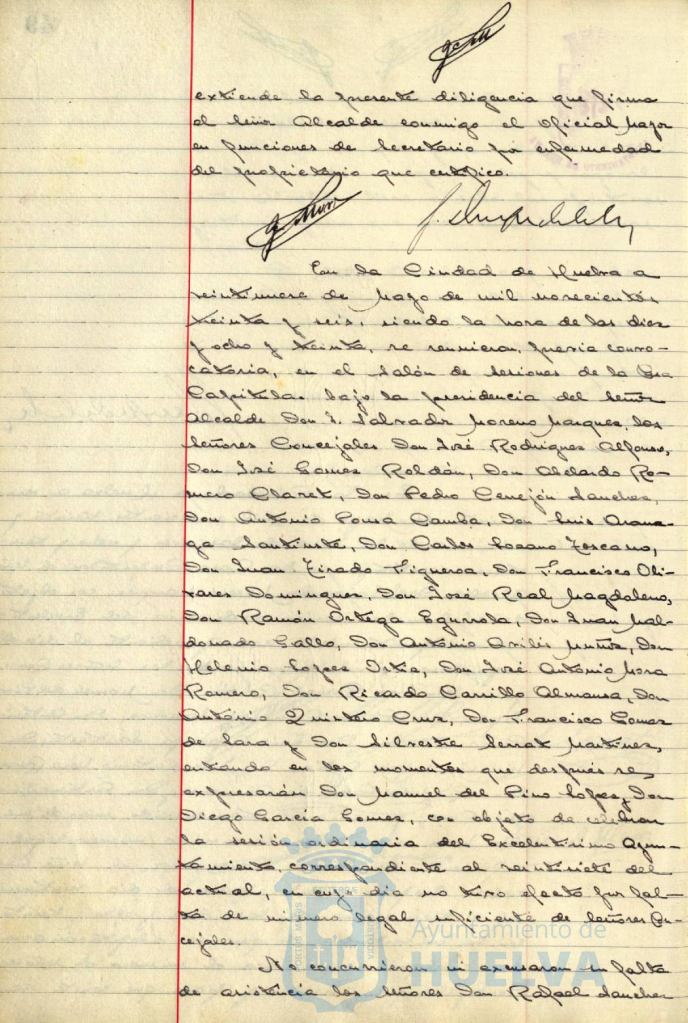 extiende la presente diligencia que firma
el Señor Alcalde conmigo el Oficial Mayor
en funciones de Secretario por enfermedad
del propietario que certifico.
En la Ciudad de Huelva a
veintinueve de Mayo de mil novecientos
treinta y seis, siendo la hora de las diez
y ocho y treinta, se reunieron, previa convo-
catoria, en el Salón de Sesiones de la Casa
Capitular bajo la presidencia del Señor
Alcalde Don Salvador Moreno Marquez, los
Señores Concejales Don José Rodriguez Alfonso,
Don José Gomez Roldán, Don Abelardo Ro-
mero Claret, Don Pedro Cerrejón Sanchez,
Don Antonio Pousa Camba, Don Luis
Don Carlos Lozano Toscano,
Don Juan Tirado Figueroa, Don Francisco Oli-
vares Dominguez, Don José Real Magdaleno,
Don Ramón Ortega Don Juan Mal-
donado Gallo, Don Antonio Avilés Muñoz, Don
Helenio Lopez Don José Antonio Mora
Romero, Don Ricardo Carrillo Almansa, Don
Antonio Quintero Cruz, Don Francisco Gomez
de Lara y Don Silvestre Serrat Martinez,
entrando en los momentos que después se
expresarán Don Manuel del Pino Lopez y Don
Diego García Gomez, con objeto de celebrar
la sesión ordinaria del Excelentísimo Ayun-
tamiento, correspondiente al veintisiete del
actual, en cuyo dia no tuvo efecto por fal-
ta de número legal suficiente de Señores Con-
cejales.
No concurrieron ni excusaron su falta
de asistencia los Señores Don Rafael Sanchez
Ayuntamiento de
HUELVA